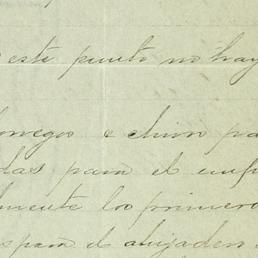 este punto no hay
borregos o chivos pa
das para el
mente los primero
para el ahijadero